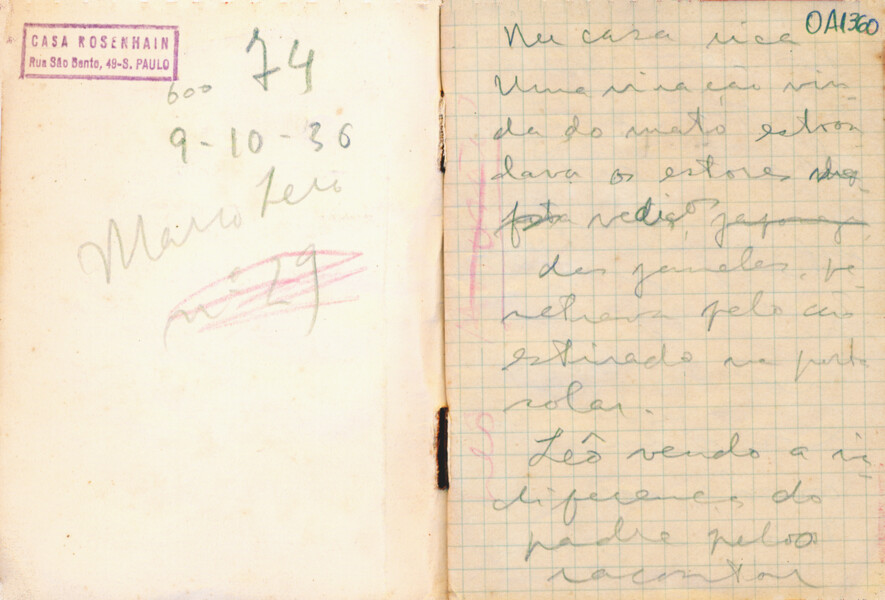 CASA ROSENHAIN
Rua São Bento, 49-S. PAULO
600 74
9-10-36
Marco Zero
nº 29
OA1360
Na casa rica
Uma viração vin-
da do mato estron
dava os estores
vedigos,
das janelas, pe-
netrava pelo cão
estirado na porta
solar.
Leô vendo a in-
diferença do
padre pelos
racontar